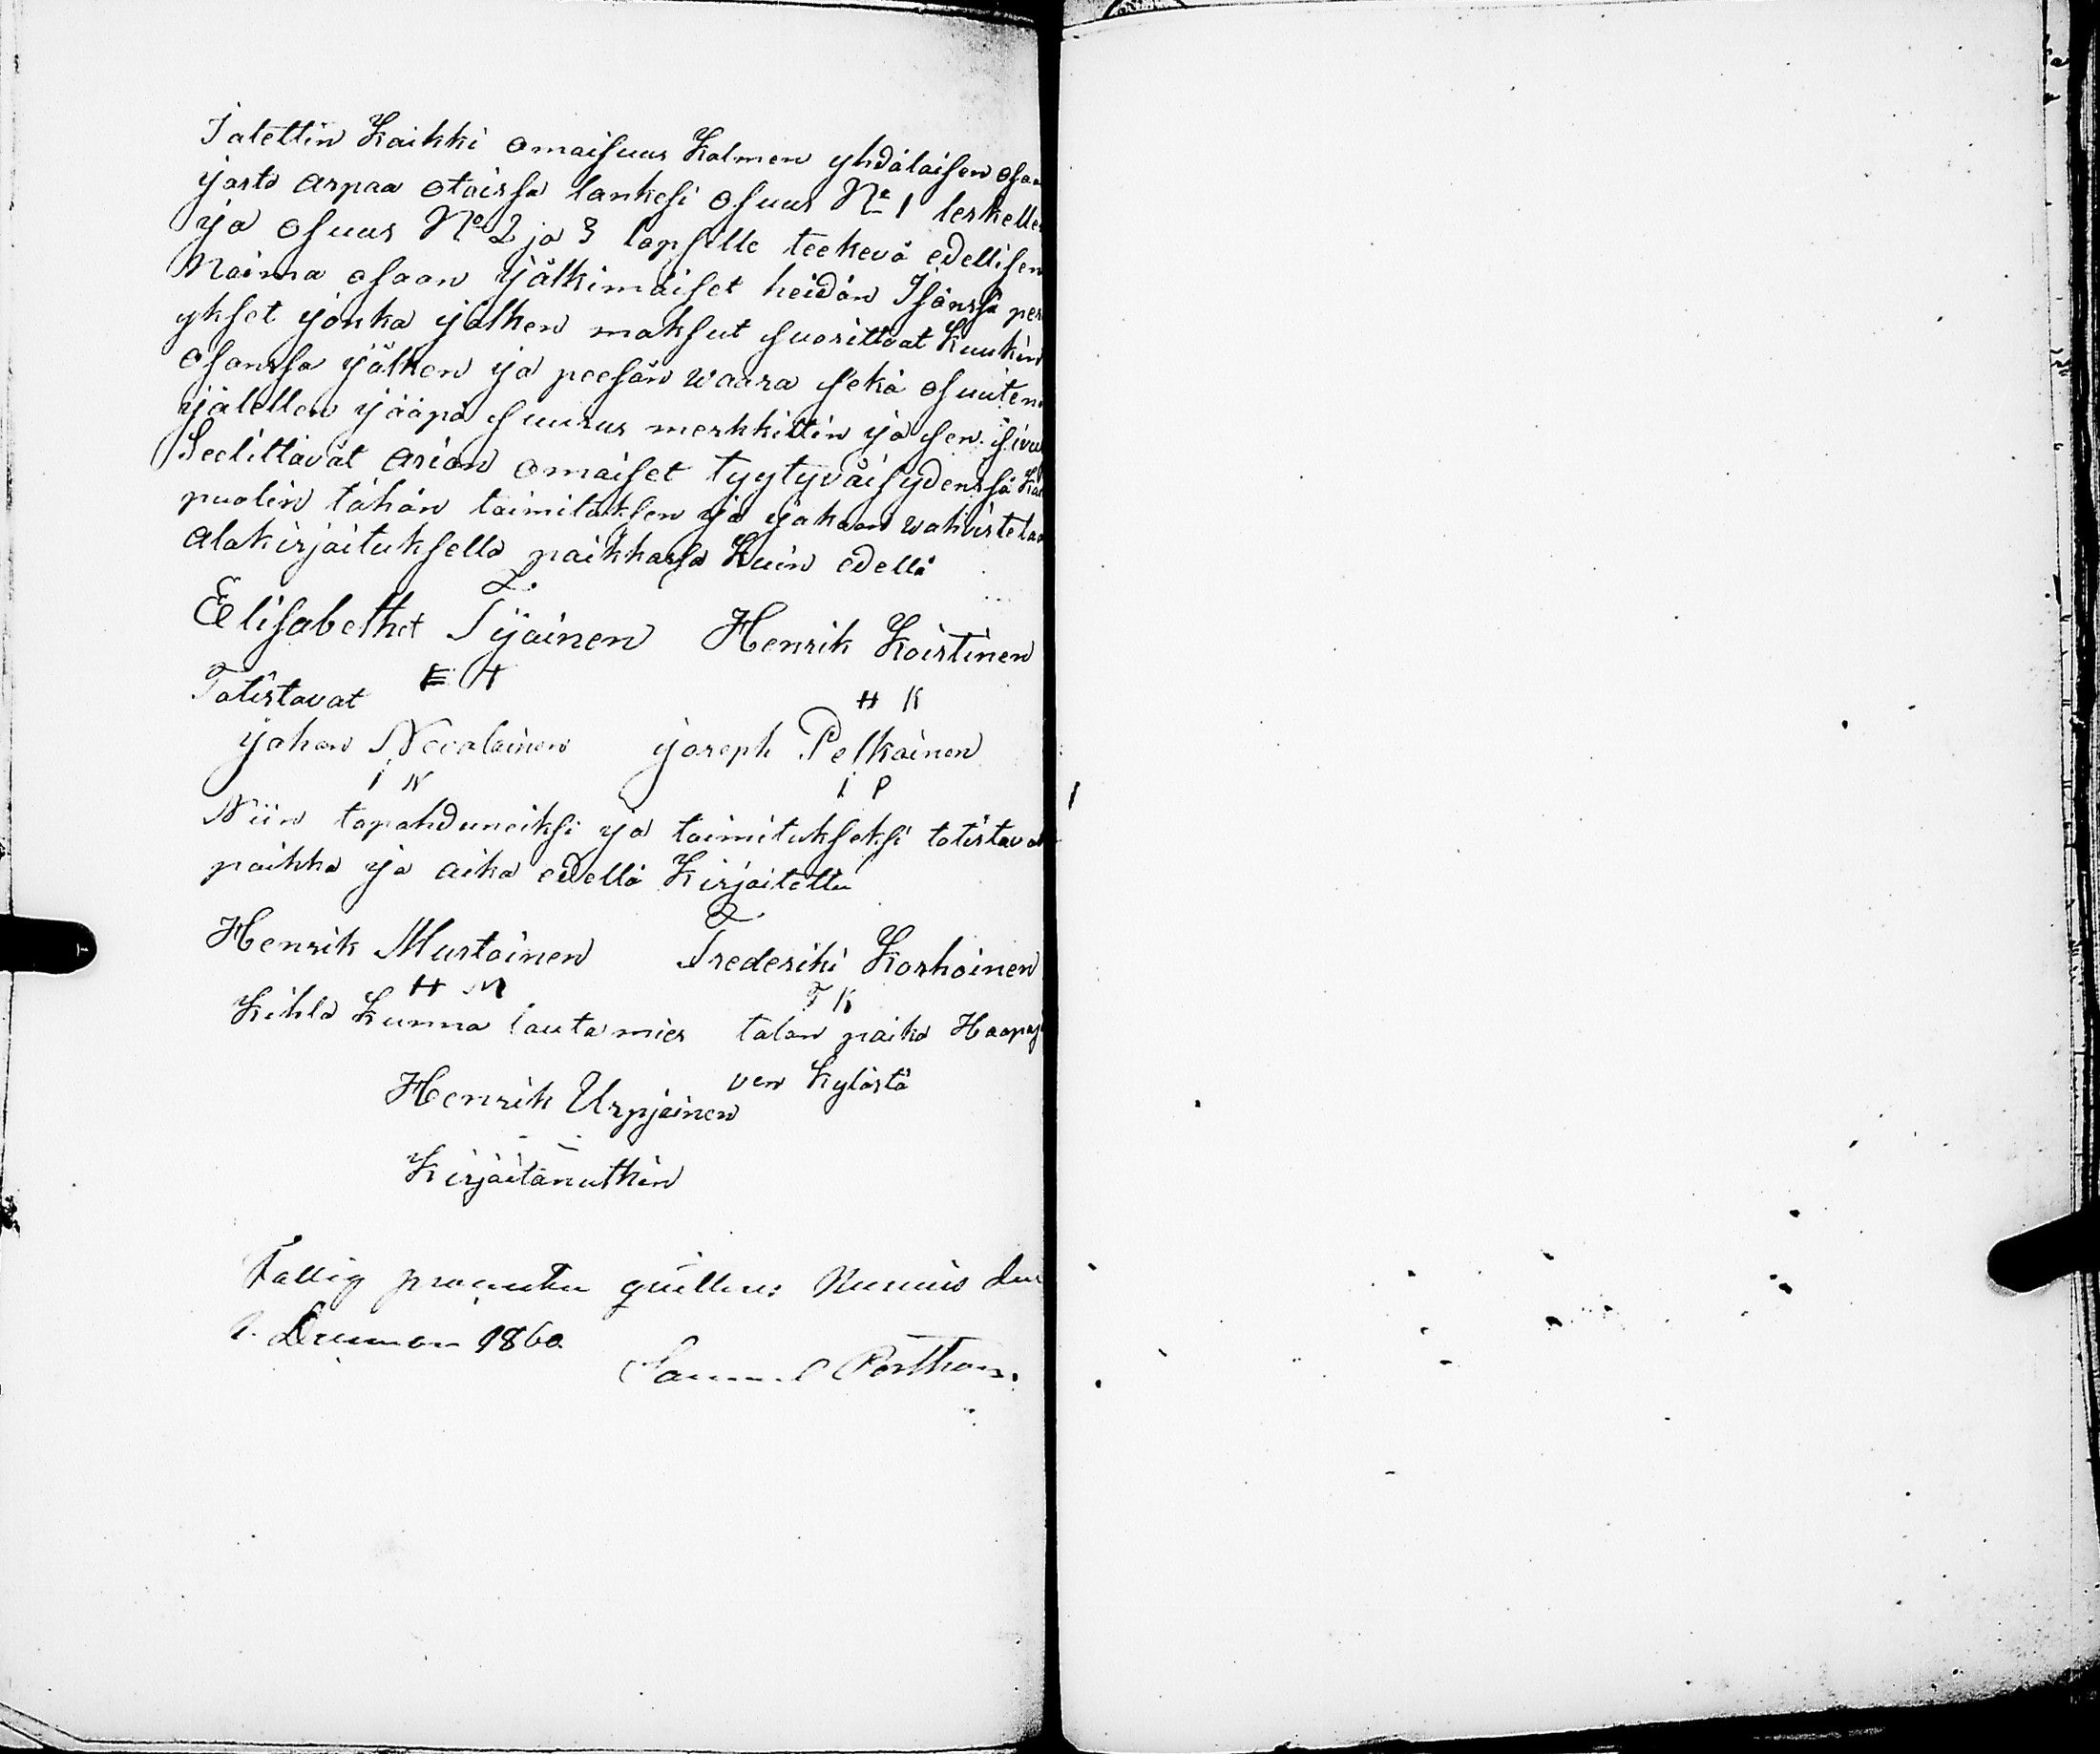 Jalettin Kaikki omaisuus Kolmen yhdäläisen osan
josta arpaa otaissa lankesi osuus No 1 leskelle
ja osuus No 2 ja 3 lapsille teekevä edellisen
Naima osaan jälkimäiset heidän Isänsä per
ykset jonka jälken maksut suorittaat Kuukin
osansa jälken ja peesän waara sekä osuuten
jälellen jääpä suurus merkkittin ja sen sivu
Seelittävät asian omaiset tyytyväisydensä
puolin tähän toimituksen ja jakoon wahvistetaa
alakirjoituksella paikkassa Kuin edellä
Elisabethet Tijainen Henrik Koistinen
E T
Totistavat H K
johan Nevalainen joseph Pelkoinen
i N i P
Niin tapahduneiksi ja toimitukseksi totistavat
paikka ja aika edellä Kirjoitettu
Henrik Mustoinen Frederiki Korhoinen
H M F K
Kihla Kunna lautamies talon poika Haapaj
ven Kylästä
Henrik Urpiainen
Kirjoitanutkin
Fattig procenten quitteras Nurmis den
Decemer 1860.
Samuel Porthan.